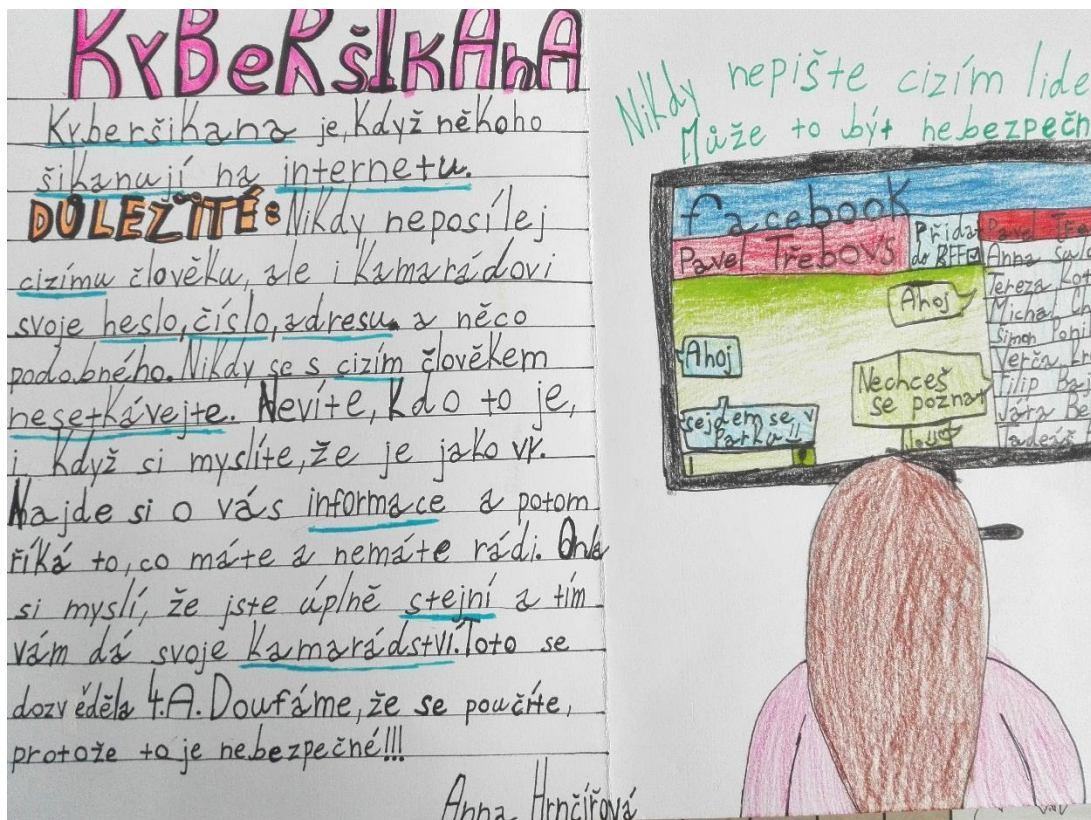 KYBERŠIKANA
Kyberšikana je, Když někoho
šikanují na internetu.
DŮLEŽITÉ: Nikdy neposílej
cizímu člověku, ale i Kamarádovi
svoje heslo, číslo, adresu a něco
podobného. Nikdy se s cizím člověkem
nesetkávejte. Nevíte, Kdo to je,
i Když si myslíte, že je jako vy.
Najde si o vás informace a potom
říká to, co máte a nemáte rádi. Ona
si myslí, že jste úplně stejní a tím
vám dá svoje Kamarádství. Toto se
dozvěděla 4.A. Doufáme, že se poučíte,
protože to je nebezpečné!!!
Anna Hrnčířová
Nikdy nepište cizím lide
Může to být nebezpečn
facebook
Pavel Třebovs
Přidat
do BFF
Pavel
Anna
Tereza
Michal
Simon
Verča
Filip
Jára
Tadeáš
Ahoj
Ahoj
Nechceš
se poznat
sejdem se v
Parku!!